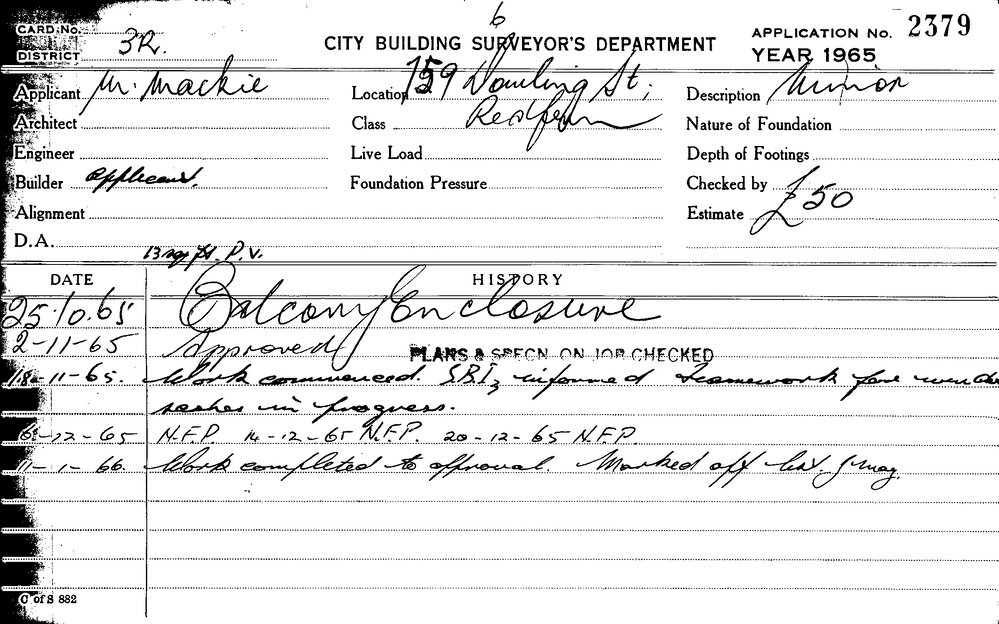 6
CARD No. CITY BUILDING SURVEYOR'S DEPARTMENT APPLICATION No. 2379
DISTRICT 3R. YEAR 1965
Applicant Mr. Mackie Location 759 Dowling St; Description Minor
Architect Class Redfern Nature of Foundation
Engineer Live Load Depth of Footings
Builder applicant. Foundation Pressure Checked by
Alignment Estimate £50
D.A. 13 sq ft. P.V.
DATE HISTORY
25.10.65 Balcony Enclosure
2-11-65 Approved PLANS & SPECN. ON JOB CHECKED
18-11-65. Work commenced. S.B.I. informed framework for window
sashes in progress.
6-12-65 N.F.P. 14-12-65 N.F.P. 20-12-65 N.F.P.
11-1-66. Work completed to approval. Marked off
C of S 882